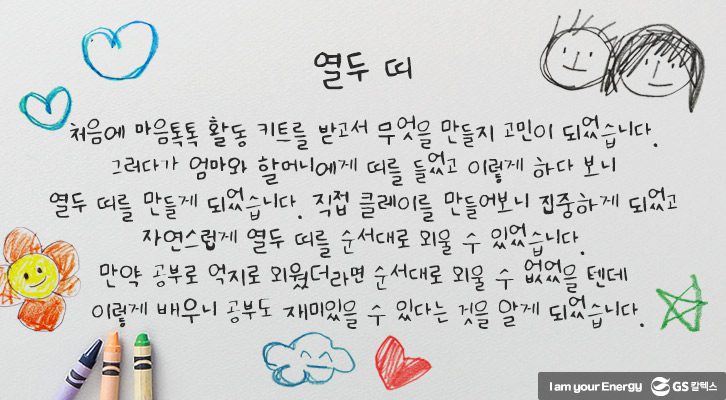 열두 띠
처음에 마음톡톡 활동 키트를 받고서 무엇을 만들지 고민이 되었습니다.
그러다가 엄마와 할머니에게 띠를 들었고 이렇게 하다 보니
열두 띠를 만들게 되었습니다. 직접 클레이를 만들어보니 집중하게 되었고
자연스럽게 열두 띠를 순서대로 외울 수 있었습니다.
만약 공부로 억지로 외웠더라면 순서대로 외울 수 없었을 텐데
이렇게 배우니 공부도 재미있을 수 있다는 것을 알게 되었습니다.
I am your Energy GS칼텍스